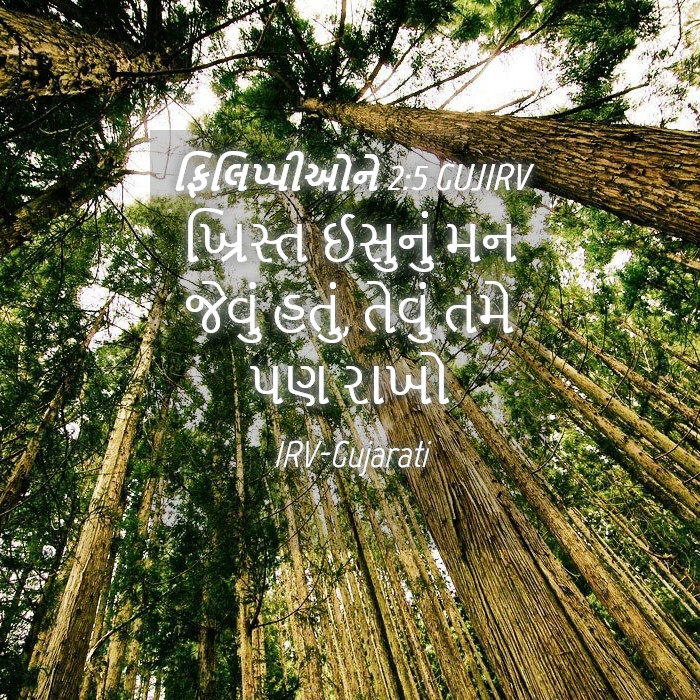 ફિલિપ્પીઓને 2:5 GUJIRV
ખ્રિસ્ત ઈસુનું મન
જેવું હતું, તેવું તમે
પણ રાખો
IRV-Gujarati